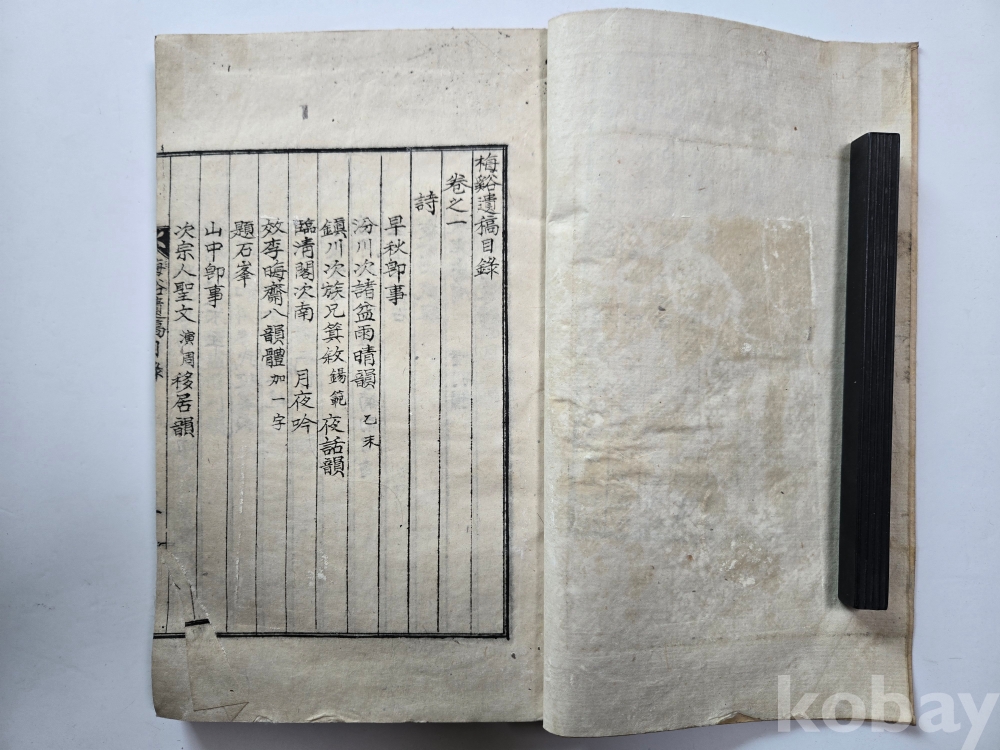 梅谿遺稿目錄
卷之一
詩
早秋卽事
汾川次諸益雨晴韻 乙未
鎭川次族兄箕敘 錫範 夜話韻
臨淸閣次南 月夜吟
效李晦齋八韻體 加一字
題石峯
山中卽事
次宗人聖文 演周 移居韻
梅谿遺稿目錄
kobay